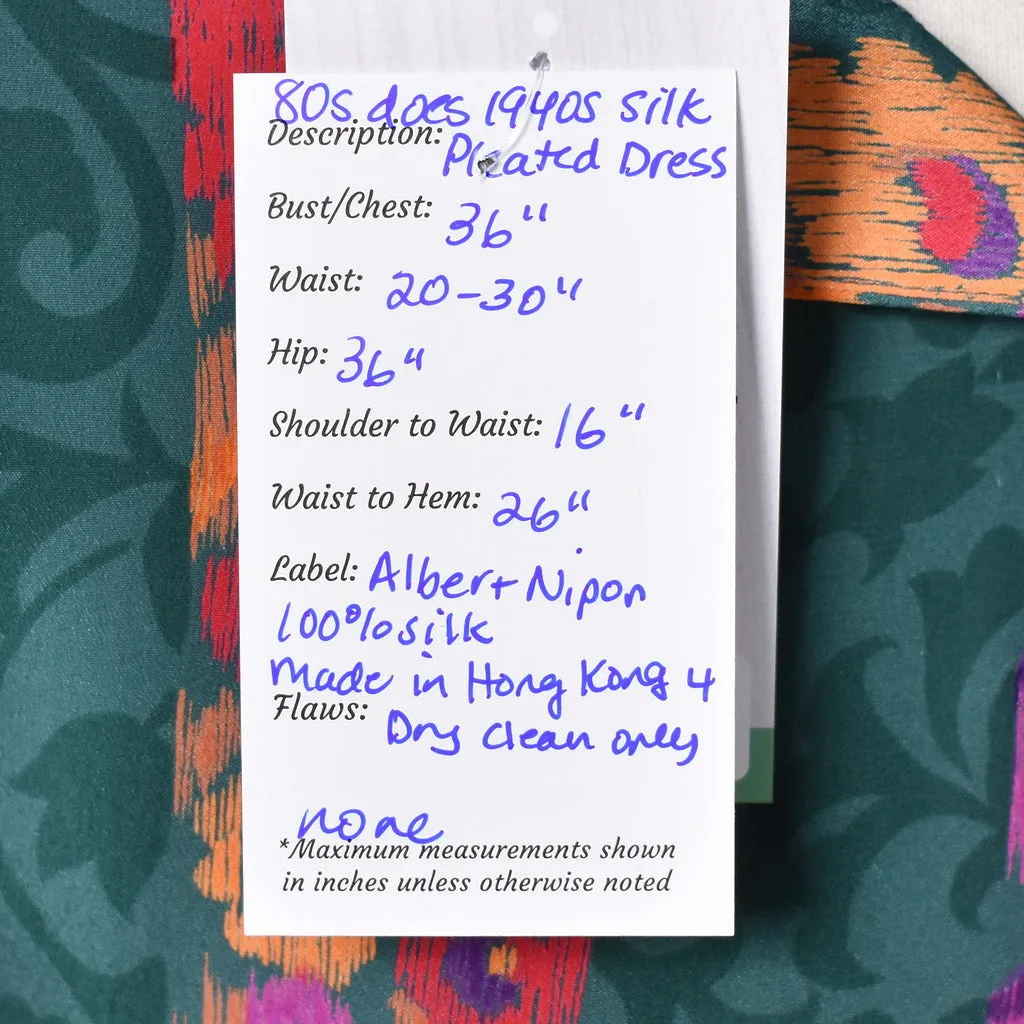 80s does 1940s silk
Description: Pleated Dress
Bust/Chest: 36"
Waist: 20-30"
Hip: 36"
Shoulder to Waist: 16"
Waist to Hem: 26"
Label: Albert Nipon
100% silk
made in Hong Kong 4
Flaws: Dry clean only
none
*Maximum measurements shown
in inches unless otherwise noted